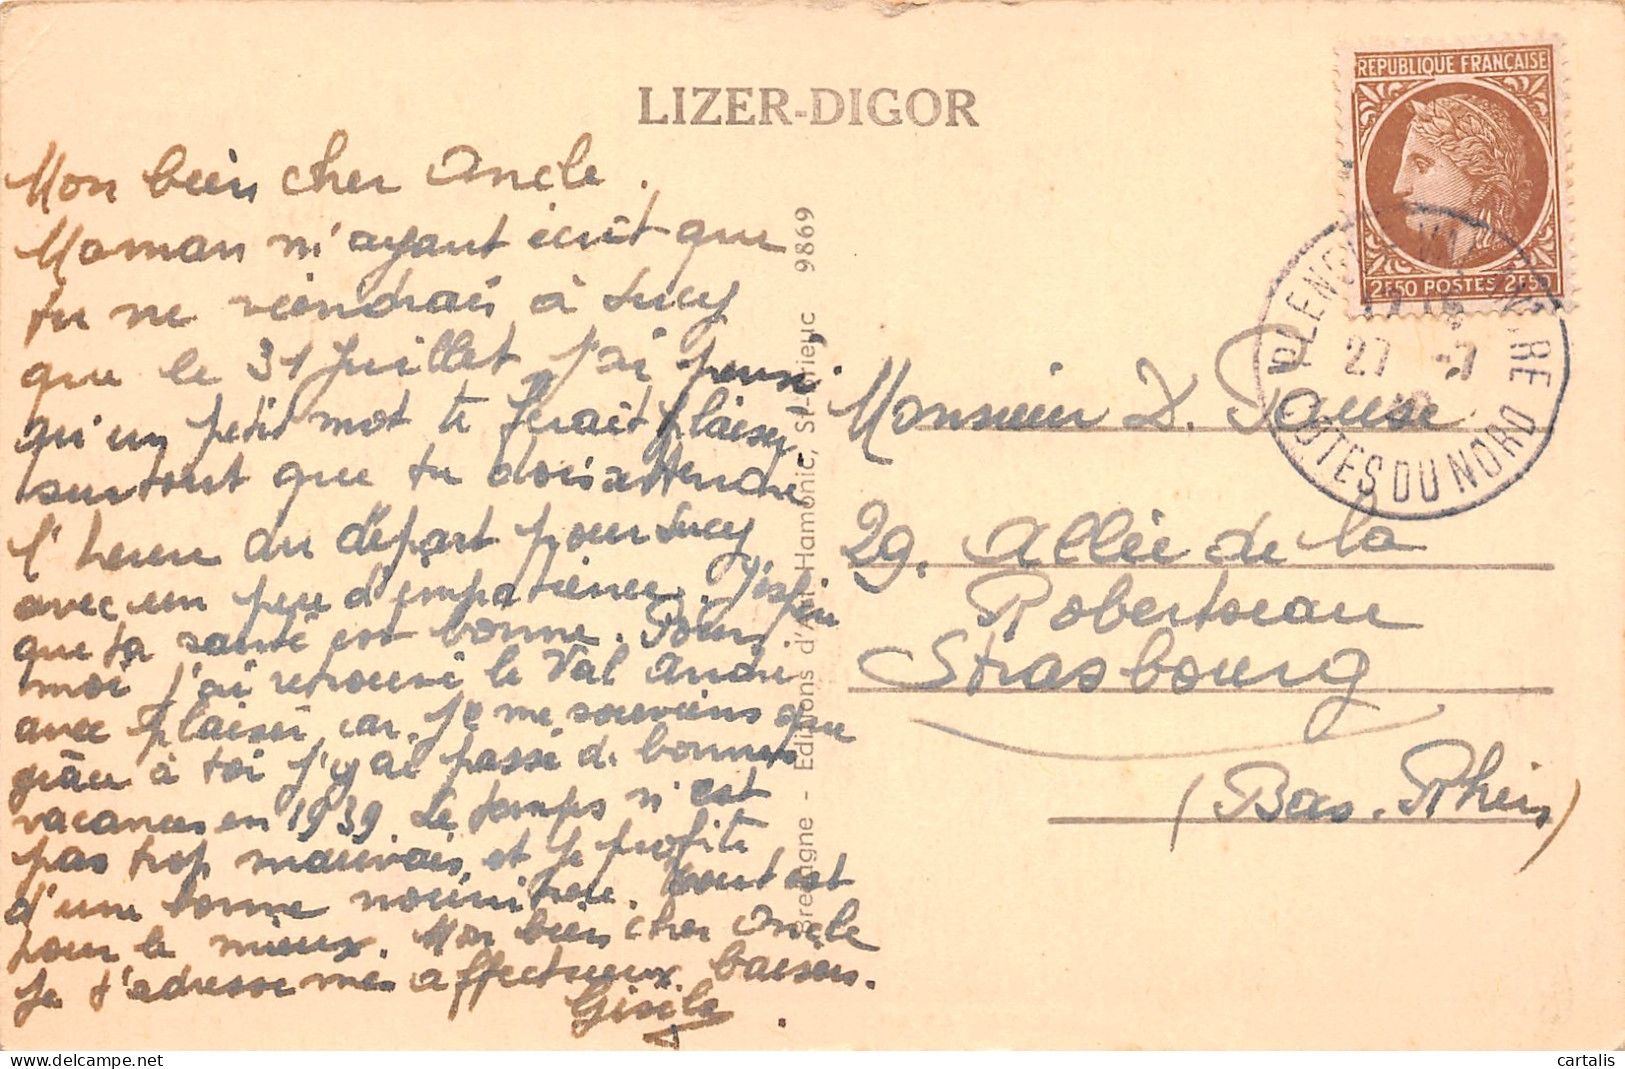 LIZER-DIGOR
Mon bien cher Oncle.
Maman m'ayant écrit que
tu ne viendrais à Lucy
que le 31 Juillet, j'ai pensé
qu'un petit mot te ferait plaisir
surtout que tu dois attendre
l'heure du départ pour Lucy
avec un peu d'impatience. J'espère
que ta santé est bonne. Pour
moi j'ai retrouvé le Val André
avec plaisir, car je me souviens que
grâce à toi j'y ai passé de bonnes
vacances en 1939. Le temps n'est
pas trop mauvais, et je profite
d'une bonne nourriture. Tout est
pour le mieux. Mon bien cher Oncle
Je t'adresse mes affectueux baisers.
Gisèle
Bretagne - Editions d'Art Hamonic, St-Brieuc 9869
REPUBLIQUE FRANÇAISE
2F50 POSTES 2F50
27 -7
COTES DU NORD
Monsieur D. Pause
29. Allée de la
Robertseau
Strasbourg
(Bas-Rhin)
cartalis